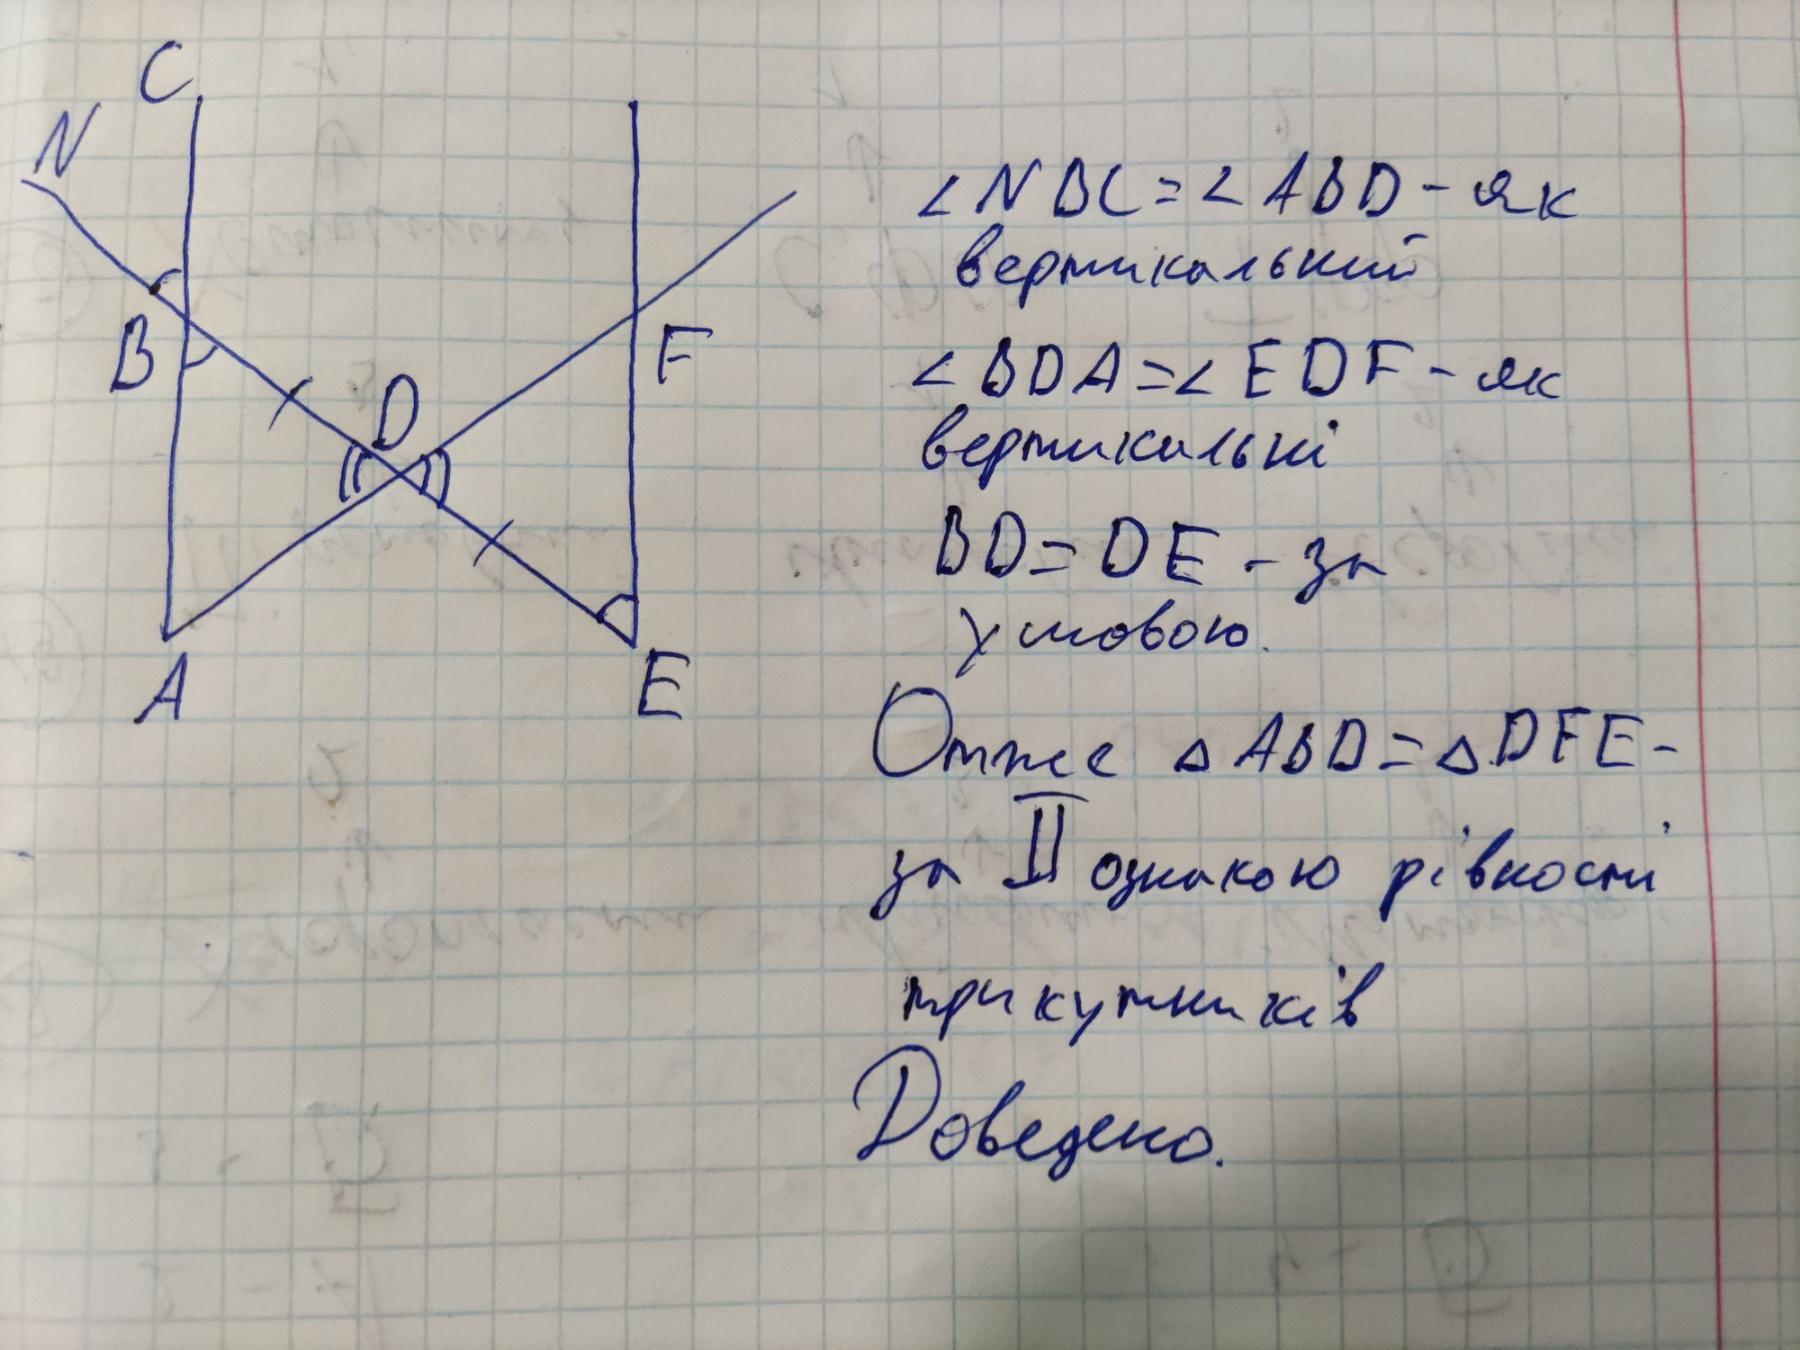 C
N
B
D
F
A
E
∠NBC=∠ABD - як
вертикальний
∠BDA=∠EDF - як
вертикальні
BD=DE - за
умовою.
Отже △ABD=△DFE -
за II ознакою рівності
трикутників
Доведено.